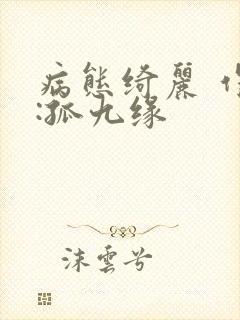 病態綺麗
:孤九缘
沫雲兮